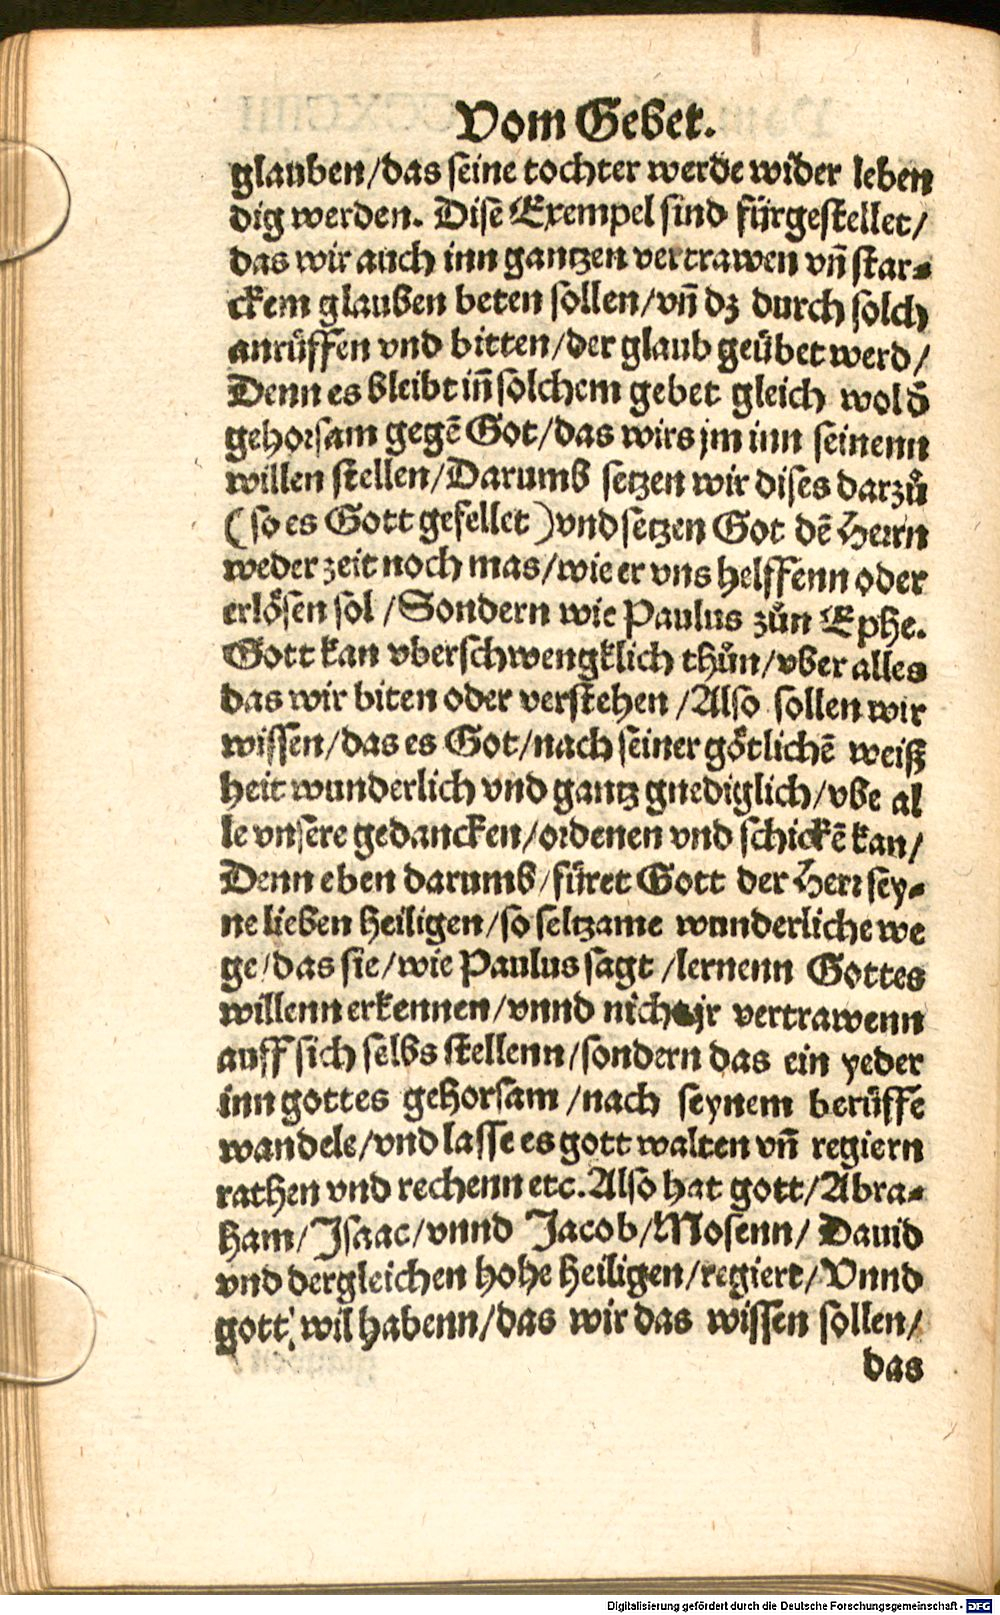 Vom Gebet.
glauben/das seine tochter werde wider leben
dig werden. Dise Exempel sind fürgestellet/
das wir auch inn gantzen vertrawen vñ star-
ckem glauben beten sollen/vñ dz durch solch
anrüffen vnd bitten/der glaub geübet werd/
Denn es bleibt iñ solchem gebet gleich wol d̃
gehorsam gegẽ Got/das wirs jm inn seinenn
willen stellen/Darumb setzen wir dises darzů
(so es Gott gefellet) vnd setzen Got dẽ Herrn
weder zeit noch mas/wie er vns helffenn oder
erlösen sol/Sondern wie Paulus zůn Ephe.
Gott kan vberschwengklich thůn/vber alles
das wir biten oder verstehen/Also sollen wir
wissen/das es Got/nach seiner götlichẽ weiß
heit wunderlich vnd gantz gnediglich/vbe al
le vnsere gedancken/ordenen vnd schickẽ kan/
Denn eben darumb/füret Gott der Herr sey-
ne lieben heiligen/so seltzame wunderliche we
ge/das sie/wie Paulus sagt/lernenn Gottes
willenn erkennen/vnnd nicht jr vertrawenn
auff sich selbs stellenn/sondern das ein yeder
inn gottes gehorsam/nach seynem berüffe
wandele/vnd lasse es gott walten vñ regiern
rathen vnd rechenn etc. Also hat gott/Abra-
ham/Isaac/vnnd Jacob/Mosenn/Dauid
vnd dergleichen hohe heiligen/regiert/Vnnd
gott wil habenn/das wir das wissen sollen/
das
Digitalisierung gefördert durch die Deutsche Forschungsgemeinschaft - DFG